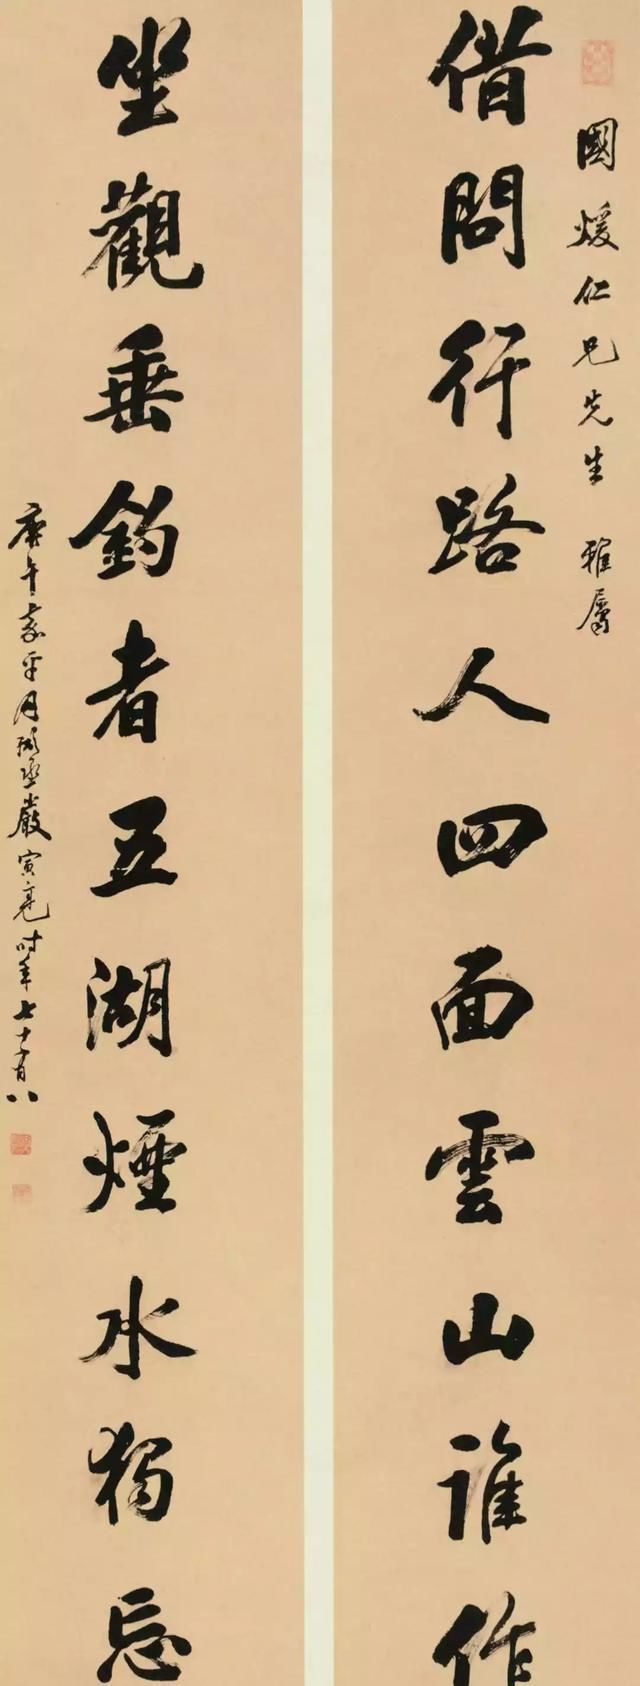 國煖仁兄先生 雅屬
借問行路人四面雲山誰作
坐觀垂釣者五湖煙水獨忘
庚午嘉平月弼丞嚴寅亮時年七十有八